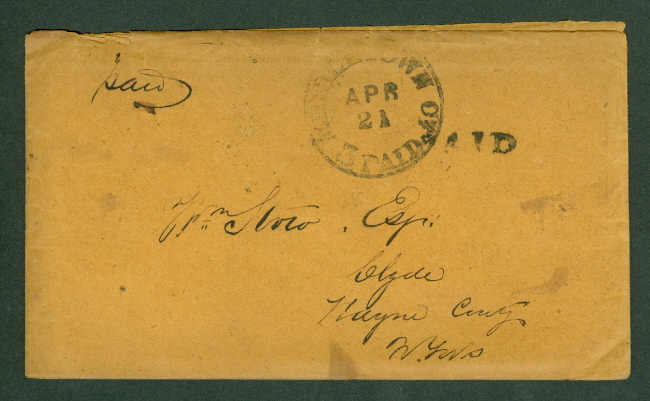 Paid
APR
21
3 PAID
AID
Wm Stow, Esq.
Clyde
Wayne County